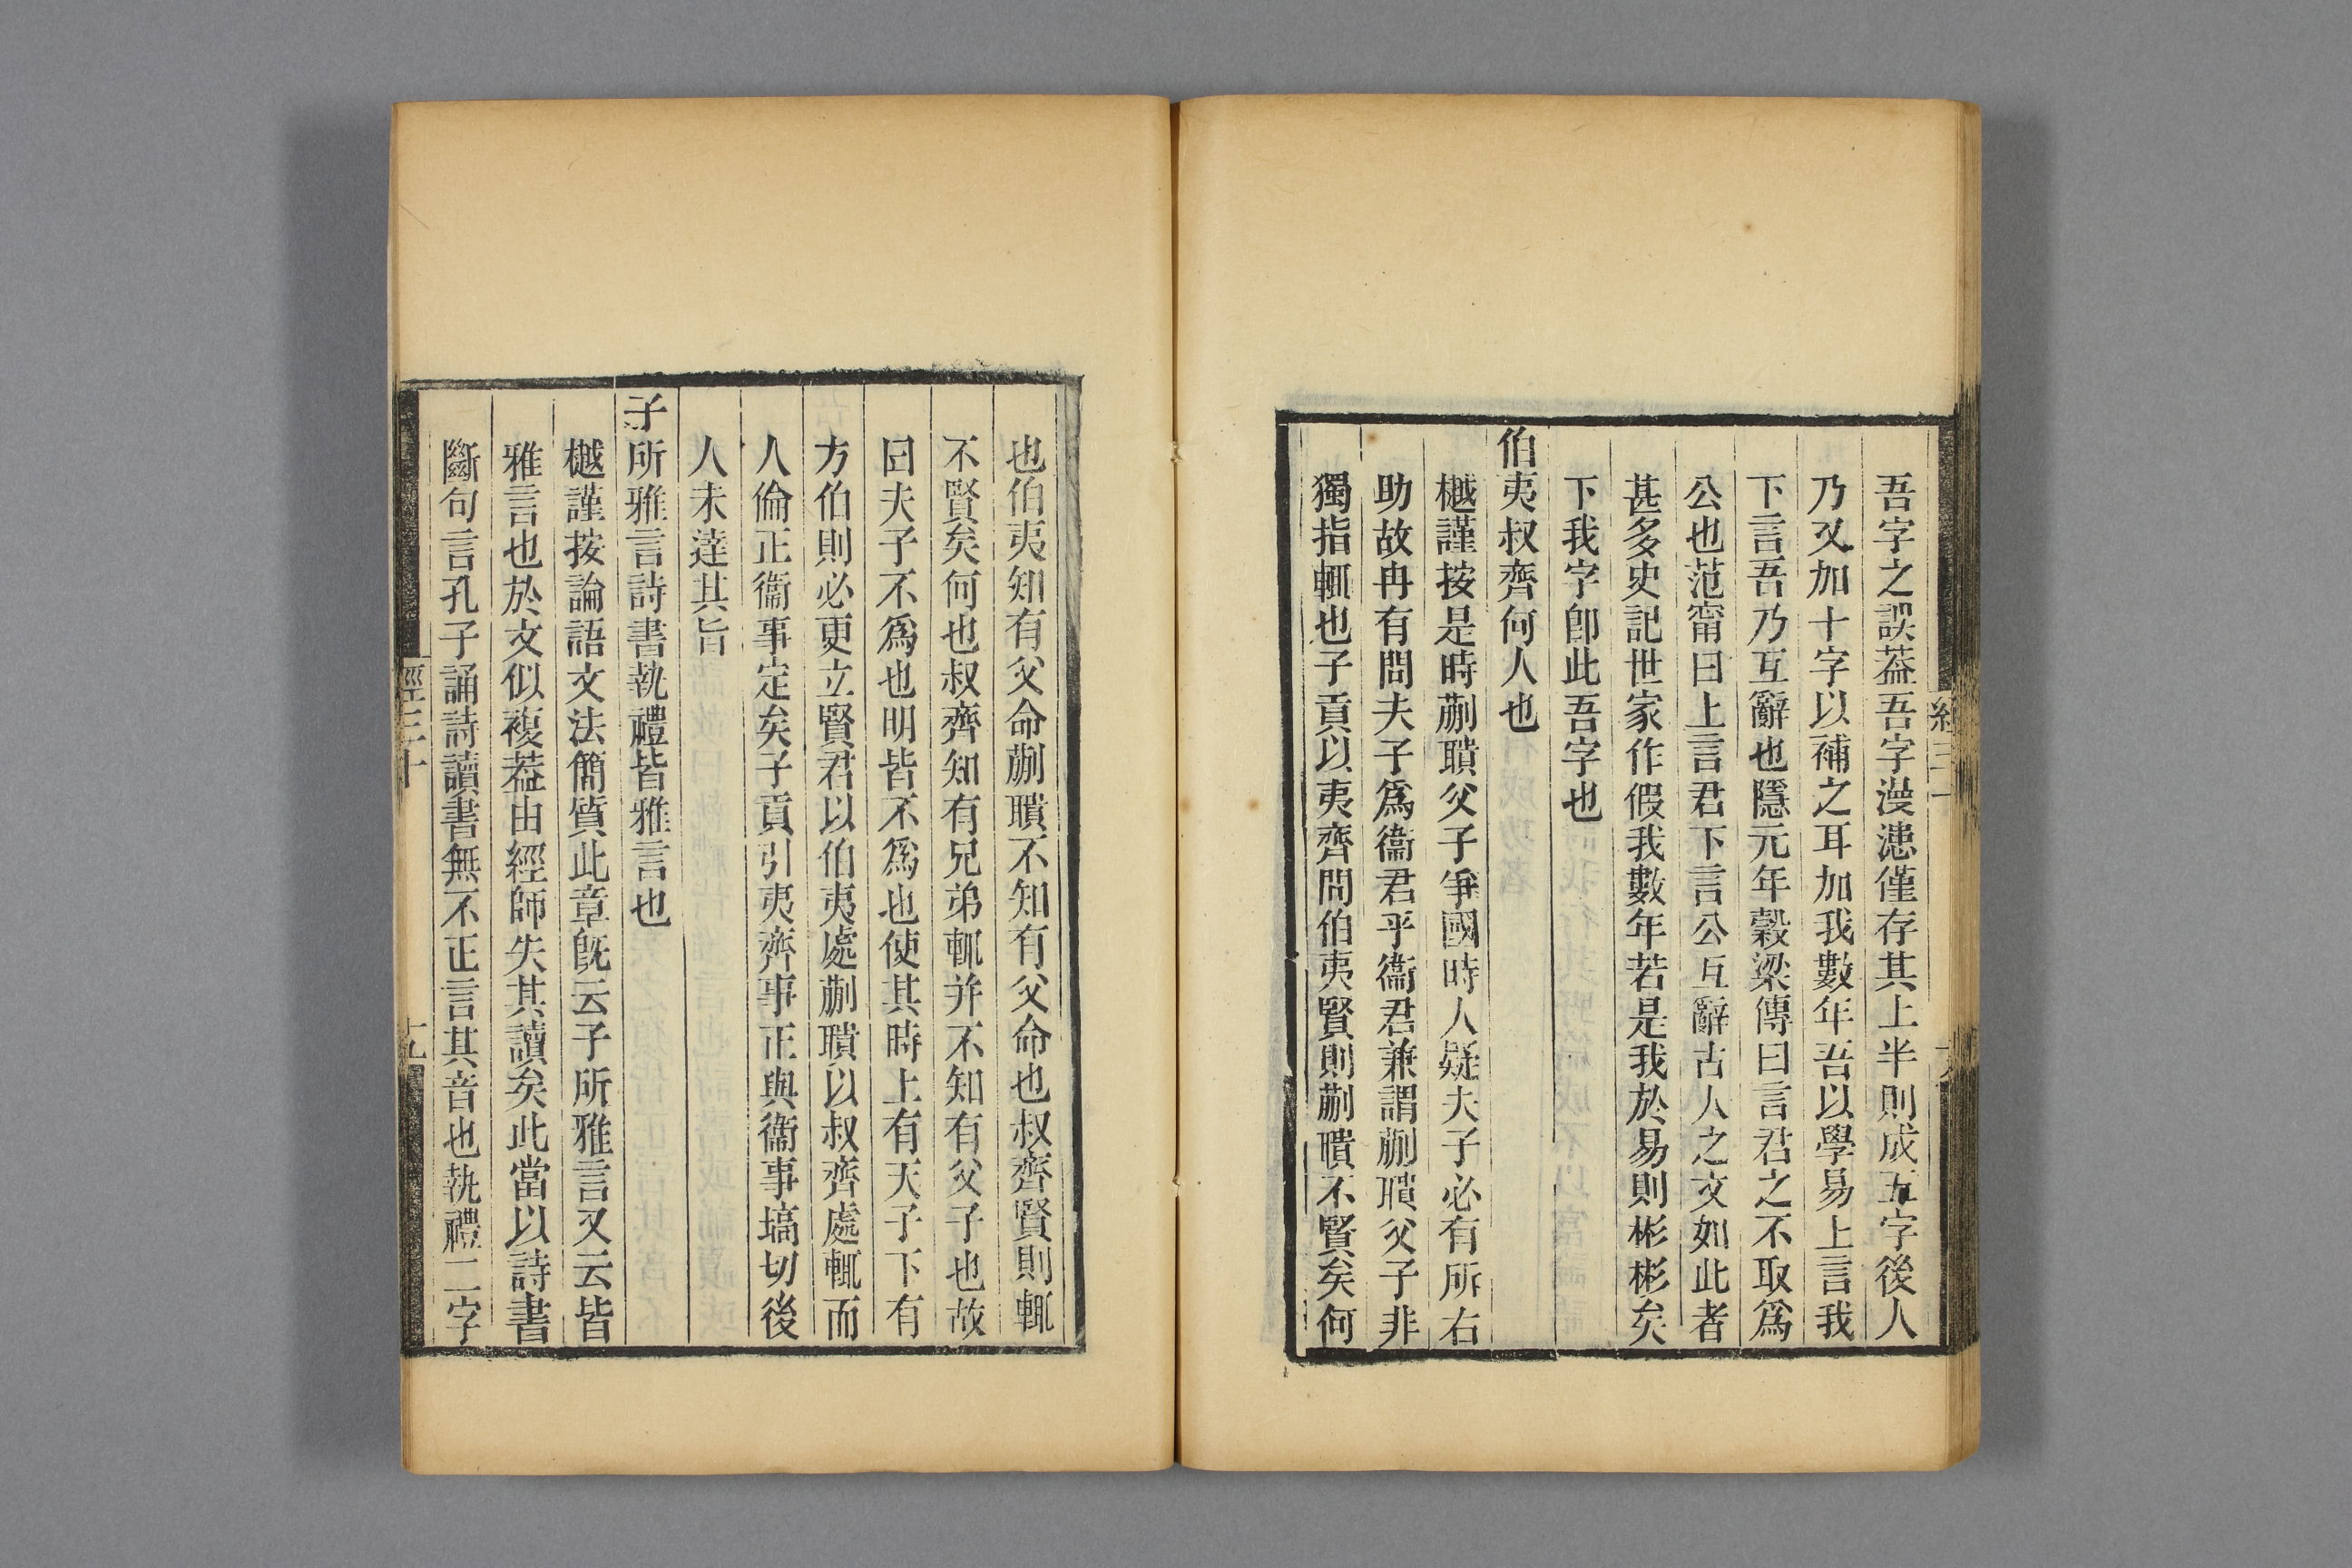 吾字之誤葢吾字漫漶僅存其上半則成五字後人
乃又加十字以補之耳加我數年吾以學易上言我
下言吾乃互辭也隱元年穀梁傳曰言君之不取爲
公也范甯曰上言君下言公互辭古人之文如此者
甚多史記世家作假我數年若是我於易則彬彬矣
下我字卽此吾字也
伯夷叔齊何人也
樾謹按是時蒯聵父子爭國時人疑夫子必有所右
助故冉有問夫子爲衞君乎衞君兼謂蒯聵父子非
獨指輒也子貢以夷齊問伯夷賢則蒯聵不賢矣何
也伯夷知有父命蒯聵不知有父命也叔齊賢則輒
不賢矣何也叔齊知有兄弟輒并不知有父子也故
曰夫子不爲也明皆不爲也使其時上有天子下有
方伯則必更立賢君以伯夷處蒯聵以叔齊處輒而
人倫正衞事定矣子貢引夷齊事正與衞事塙切後
人未達其旨
子所雅言詩書執禮皆雅言也
樾謹按論語文法簡質此章旣云子所雅言又云皆
雅言也於文似複葢由經師失其讀矣此當以詩書
斷句言孔子誦詩讀書無不正言其音也執禮二字
經三十
十九